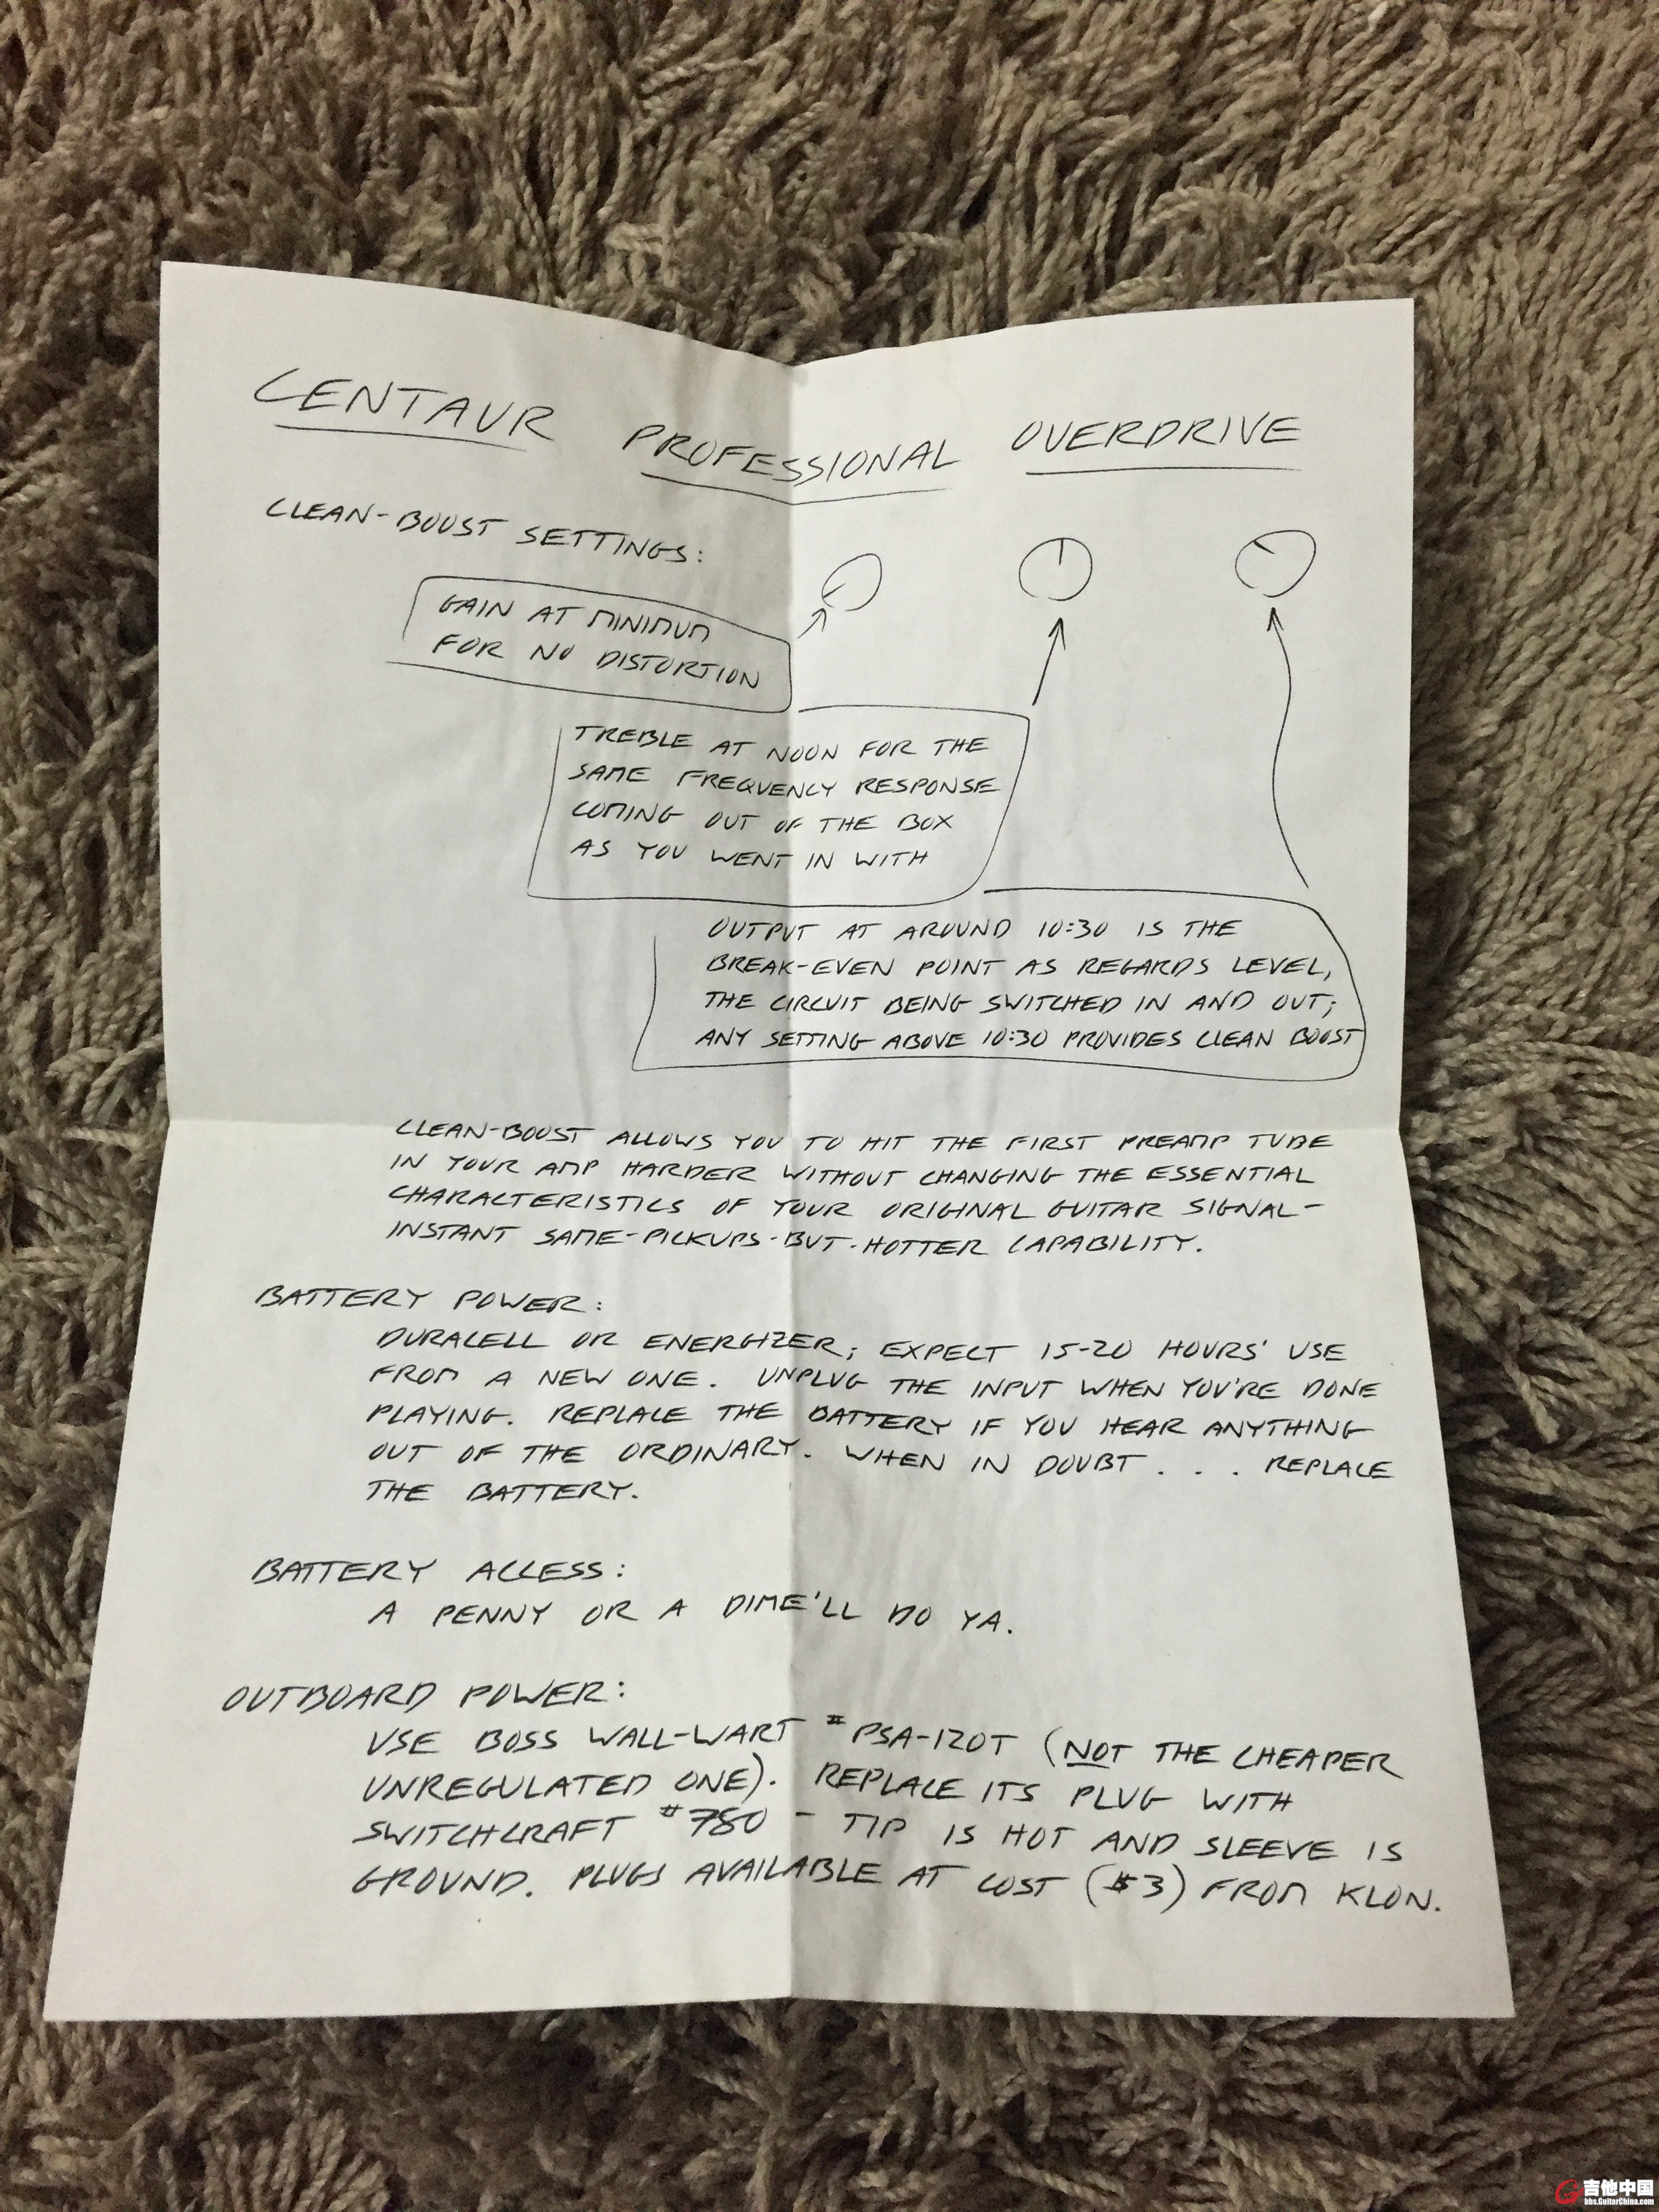 CENTAUR PROFESSIONAL OVERDRIVE
CLEAN-BOOST SETTINGS:
GAIN AT MINIMUM
FOR NO DISTORTION
TREBLE AT NOON FOR THE
SAME FREQUENCY RESPONSE
COMING OUT OF THE BOX
AS YOU WENT IN WITH
OUTPUT AT AROUND 10:30 IS THE
BREAK-EVEN POINT AS REGARDS LEVEL,
THE CIRCUIT BEING SWITCHED IN AND OUT;
ANY SETTING ABOVE 10:30 PROVIDES CLEAN BOOST
CLEAN-BOOST ALLOWS YOU TO HIT THE FIRST PREAMP TUBE
IN YOUR AMP HARDER WITHOUT CHANGING THE ESSENTIAL
CHARACTERISTICS OF YOUR ORIGINAL GUITAR SIGNAL-
INSTANT SAME-PICKUPS-BUT-HOTTER CAPABILITY.
BATTERY POWER:
DURACELL OR ENERGIZER; EXPECT 15-20 HOURS' USE
FROM A NEW ONE. UNPLUG THE INPUT WHEN YOU'RE DONE
PLAYING. REPLACE THE BATTERY IF YOU HEAR ANYTHING
OUT OF THE ORDINARY. WHEN IN DOUBT . . . REPLACE
THE BATTERY.
BATTERY ACCESS:
A PENNY OR A DIME'LL DO YA.
OUTBOARD POWER:
USE BOSS WALL-WART #PSA-120T (NOT THE CHEAPER
UNREGULATED ONE). REPLACE ITS PLUG WITH
SWITCHCRAFT #780 - TIP IS HOT AND SLEEVE IS
GROUND. PLUGS AVAILABLE AT COST ($3) FROM KLON.
吉他中国
bbs.GuitarChina.com